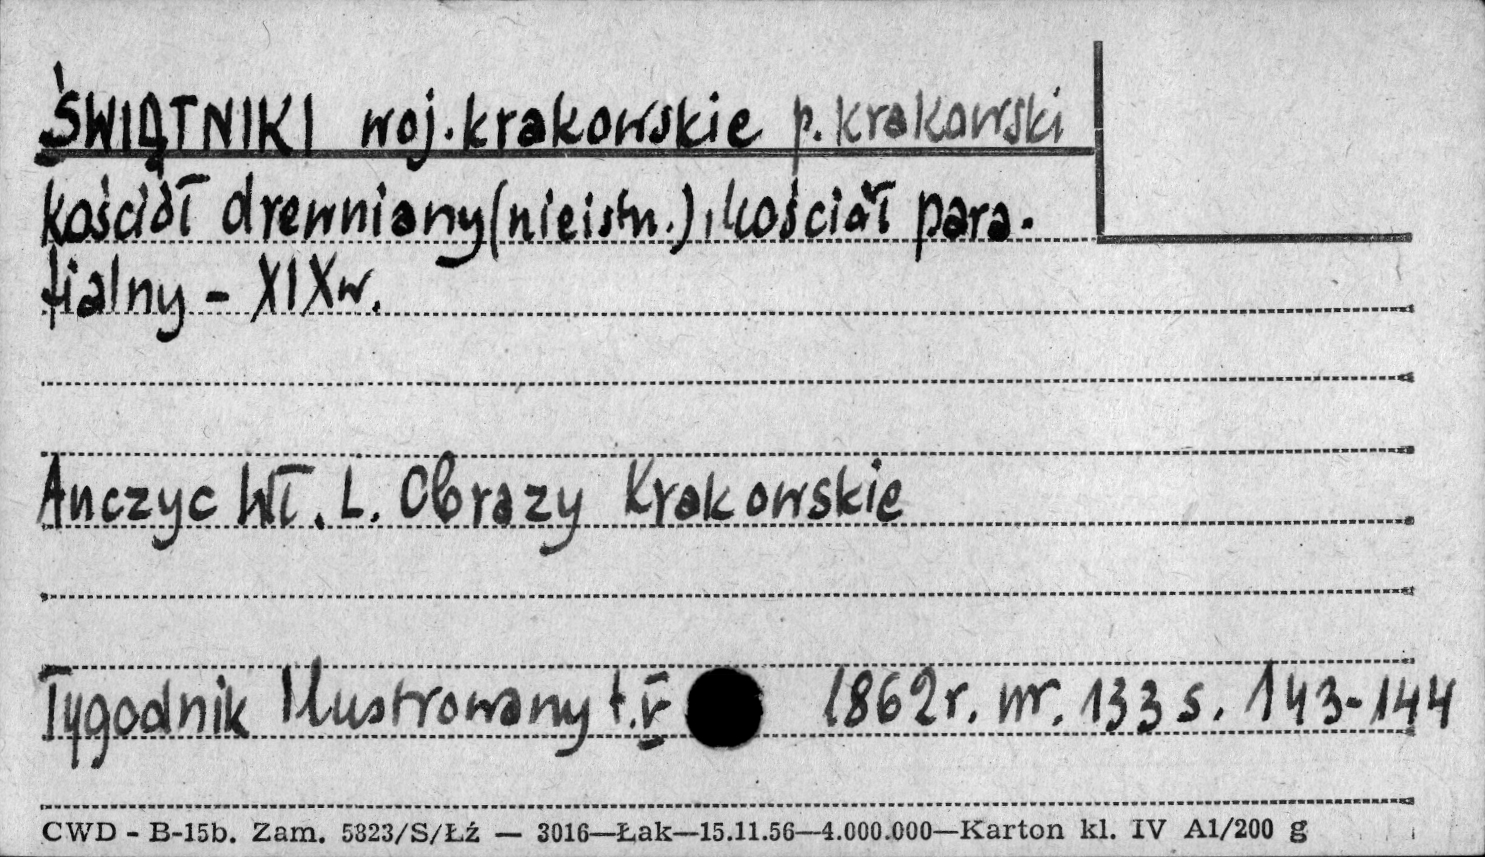 ŚWIĄTNIKI woj. krakowskie p. krakowski
kościół drewniany (nieistn.), kościół para-
fialny - XIX w.
Anczyc Wł. L. Obrazy Krakowskie
Tygodnik Ilustrowany t. V 1862 r. nr. 133 s. 143-144
CWD - B-15b. Zam. 5823/S/Łź — 3016—Łak—15.11.56—4.000.000—Karton kl. IV A1/200 g